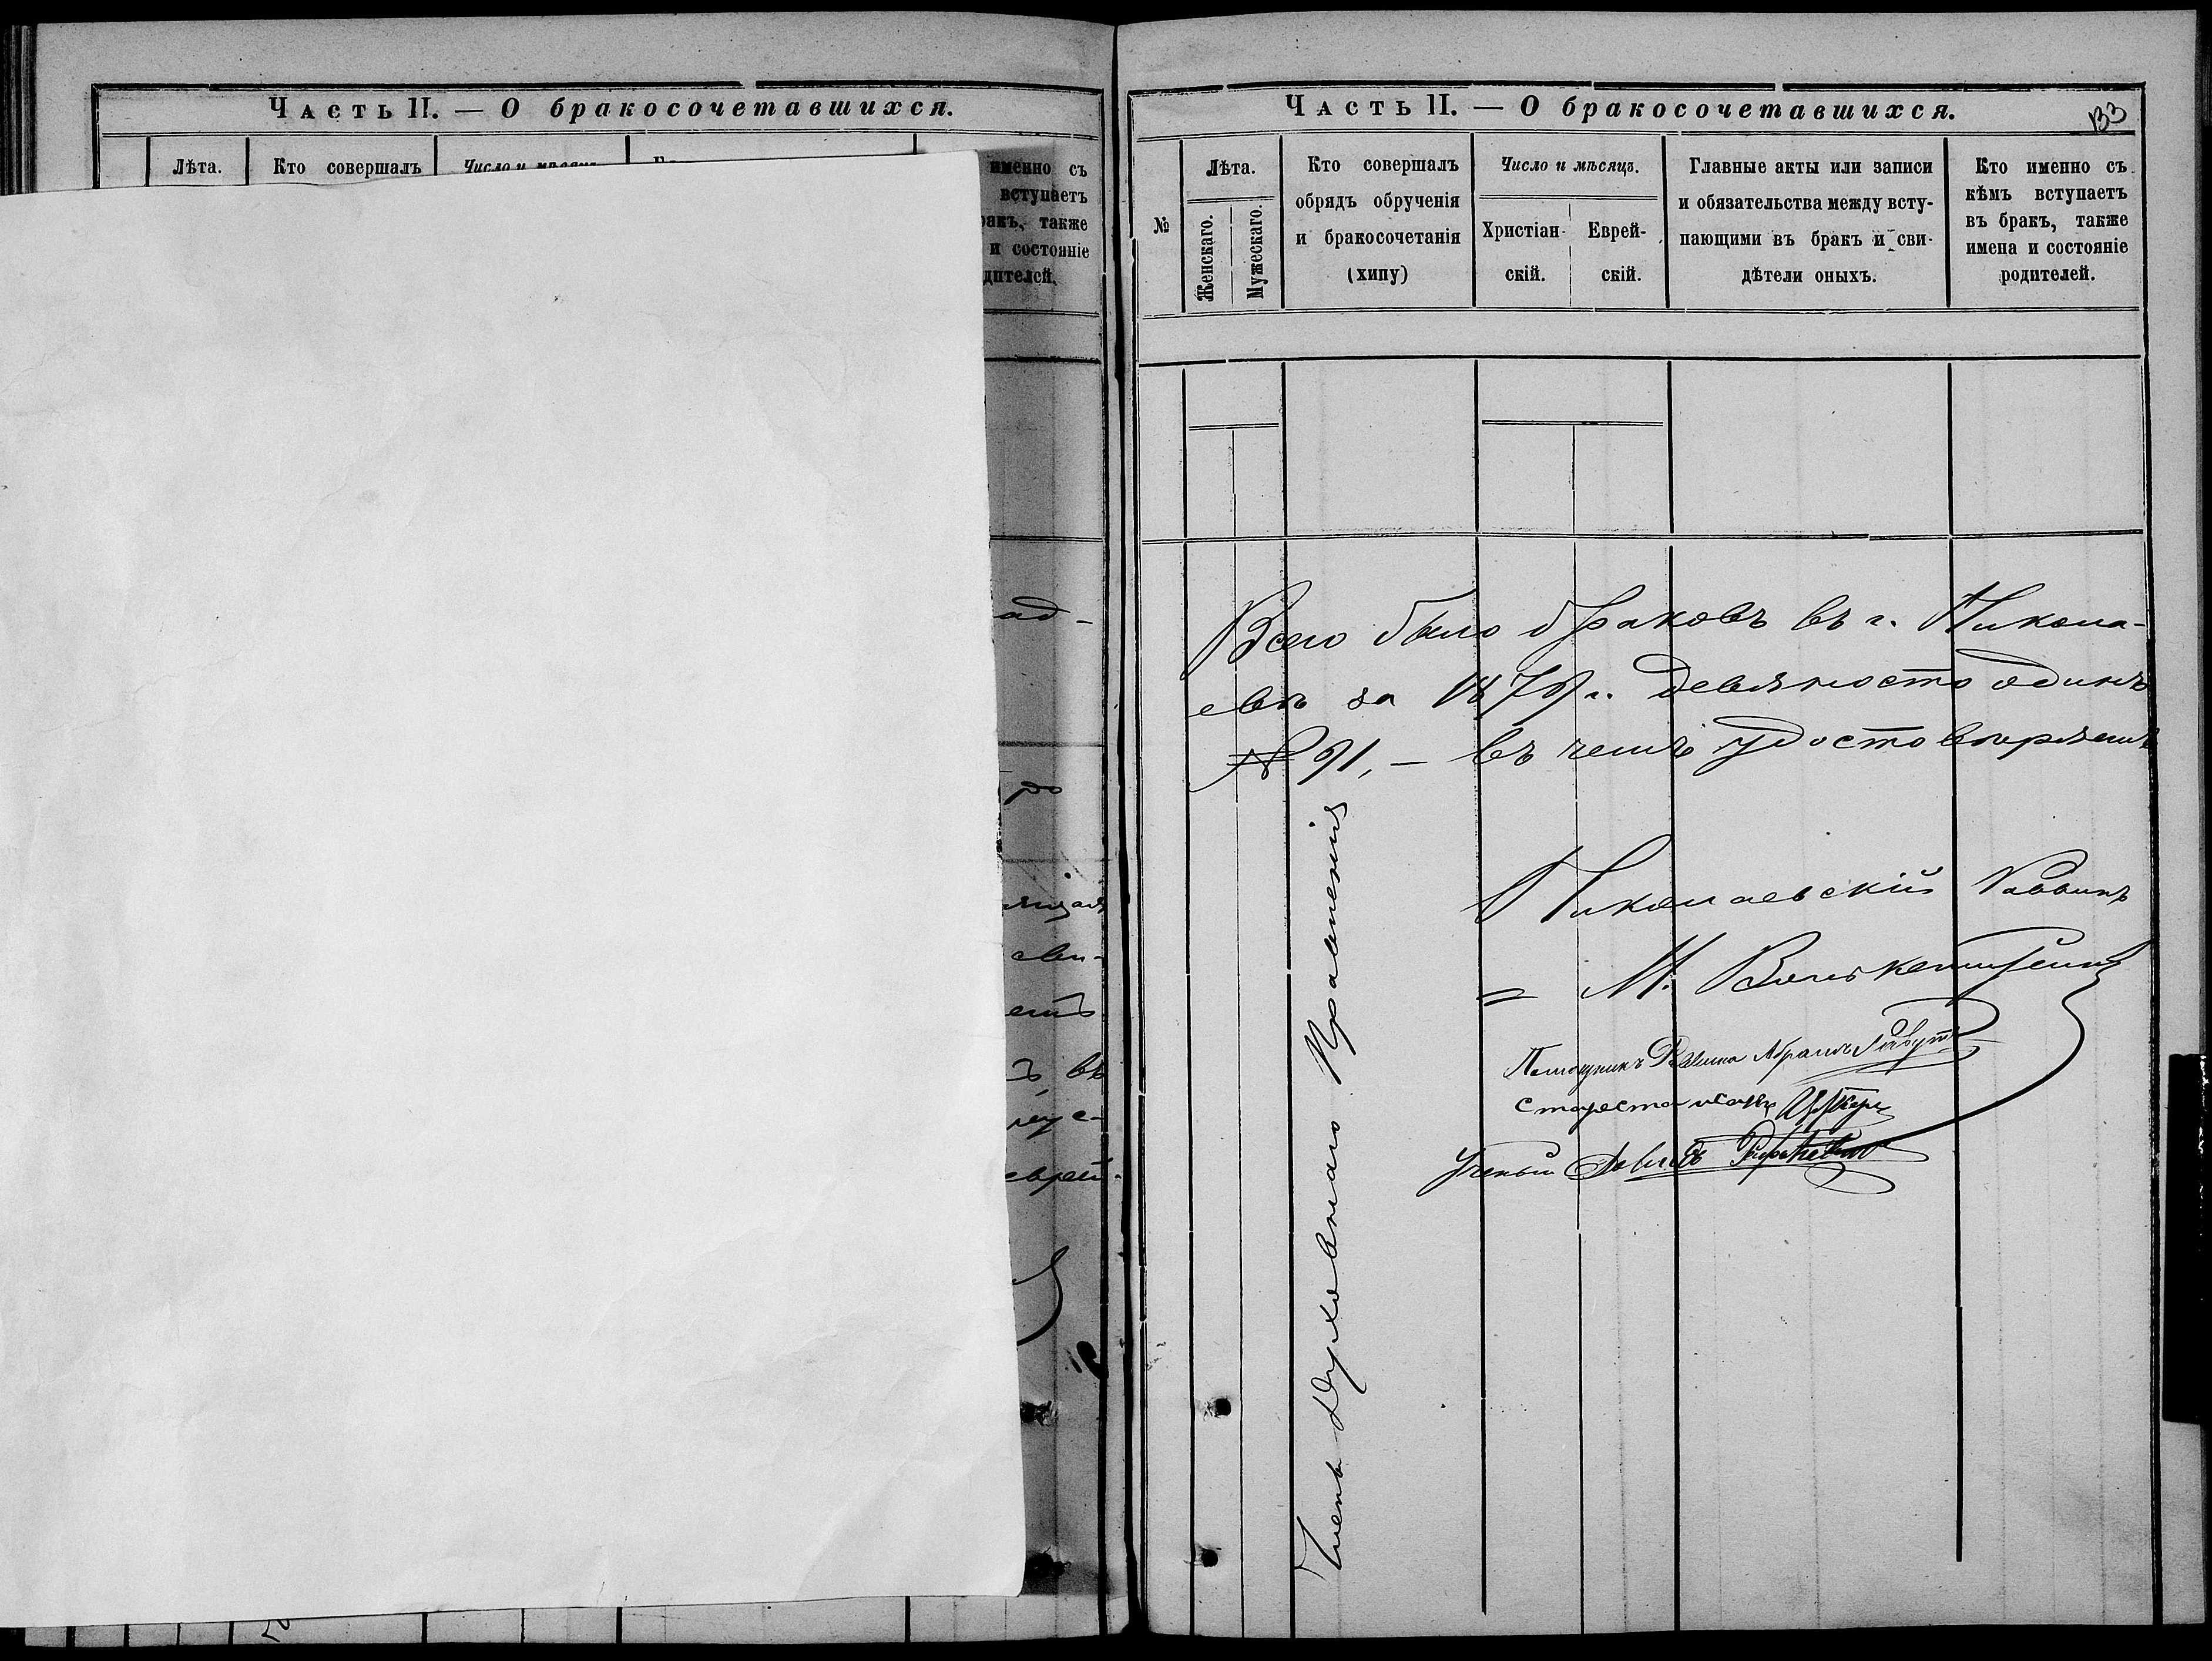 Часть II. — О бракосочетавшихся.
Лѣта.
Кто совершалъ
Число и мѣсяцъ.
именно съ
вступаетъ
ракъ, также
и состояніе
дителей.
ад-
ро
сви-
въ
еврей-
Часть II. — О бракосочетавшихся.
133
№
Лѣта.
Женскаго.
Мужескаго.
Кто совершалъ
обрядъ обрученія
и бракосочетанія
(хипу)
Число и мѣсяцъ.
Христіан-
скій.
Еврей-
скій.
Главные акты или записи
и обязательства между всту-
пающими въ бракъ и сви-
дѣтели оныхъ.
Кто именно съ
кѣмъ вступаетъ
въ бракъ, также
имена и состояніе
родителей.
Всего было браковъ въ г. Никола-
евѣ за 1879 г. девяносто одинъ
№ 91, — въ чемъ удостовѣряемъ
Николаевскій Раввинъ
М.
Помощникъ Раввина Абрамъ
Староста
Ученый
Члены Духовнаго Правленія